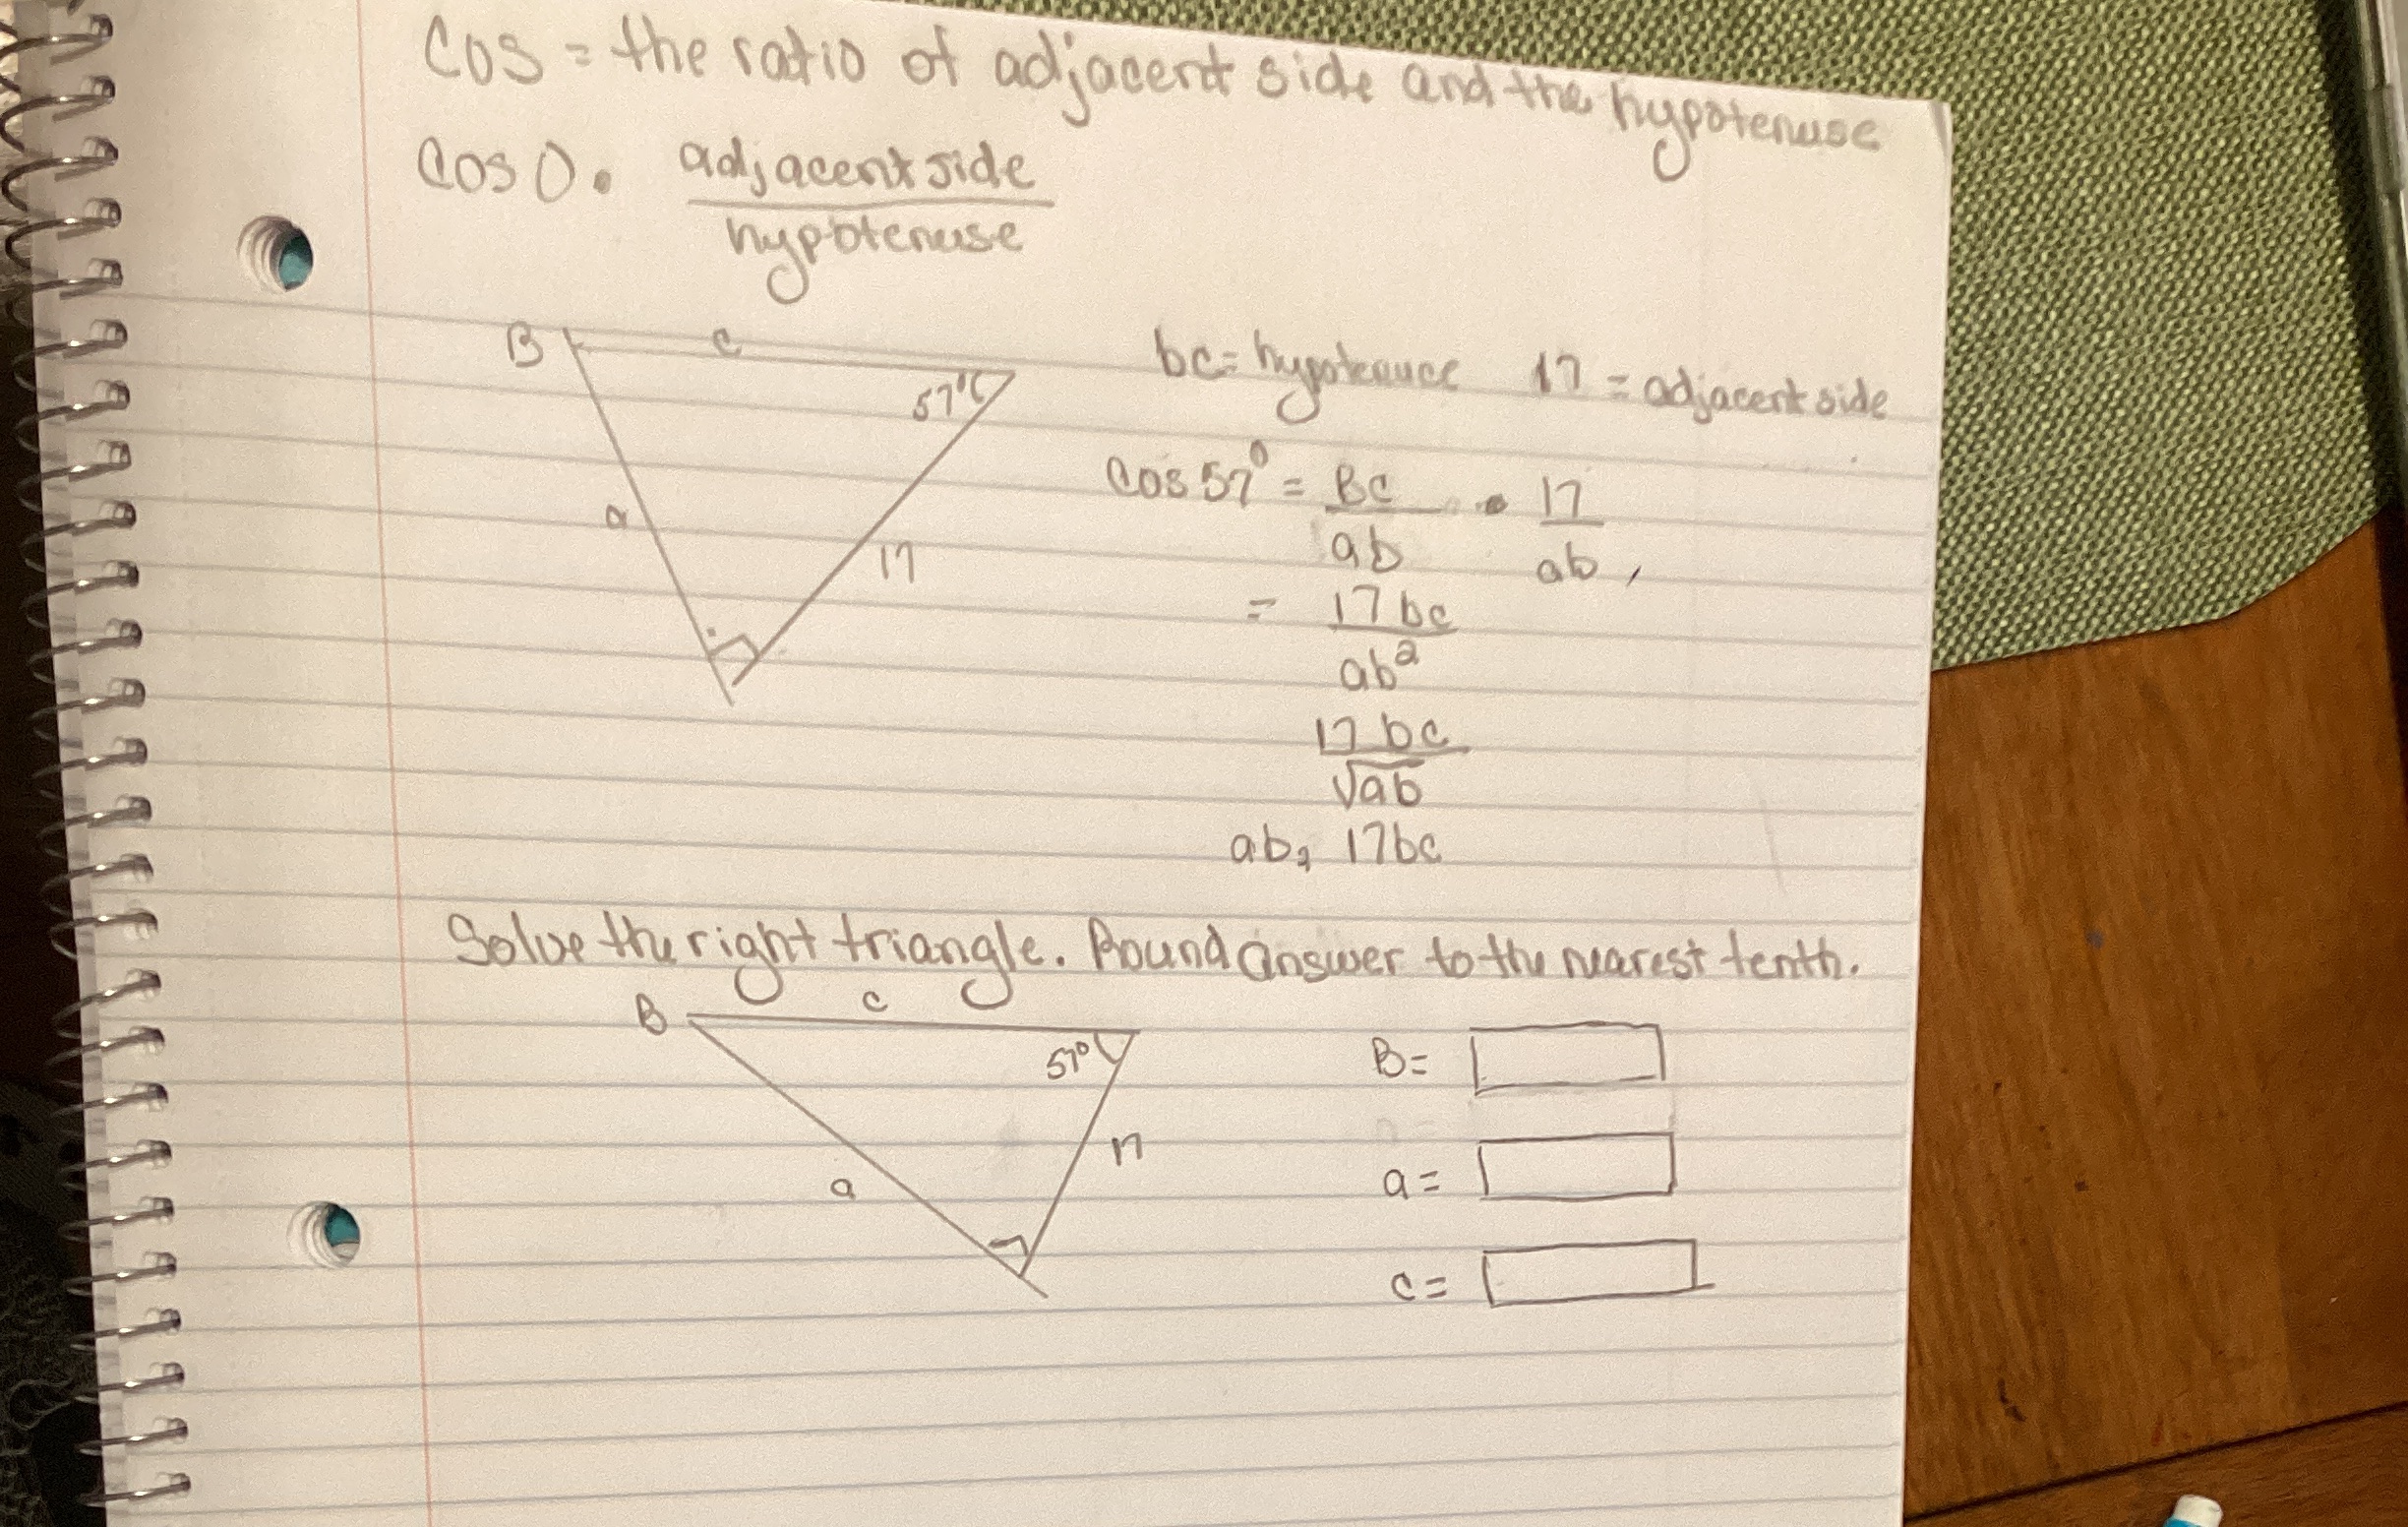 Cos = the ratio of adjacent side and the hypotenuse
Cos 0. adjacent side
hypotenuse
B c
57°
a
17
bc = hypotenuce 17 = adjacent side
Cos 57° = Bc • 17
ab ab,
= 17 bc
ab²
17 bc
√ab
ab, 17bc
Solve the right triangle. Round answer to the nearest tenth.
B c
57°
17
a
B=
a=
c=